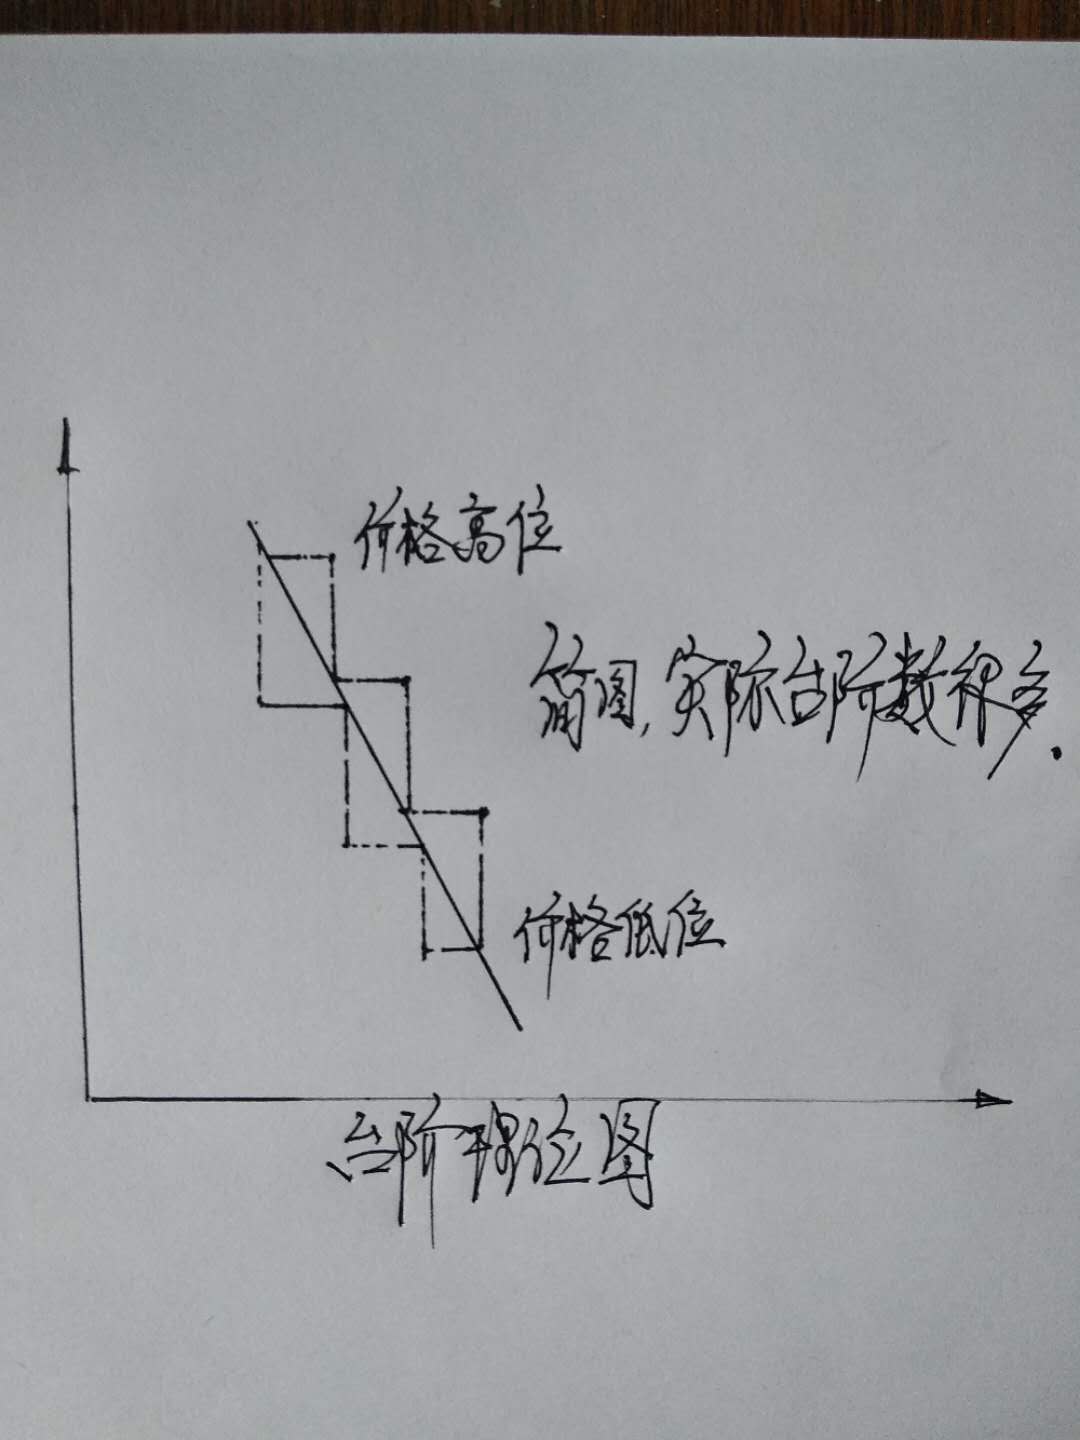 价格高位
简图,实际台阶数很多.
价格低位
台阶理位图